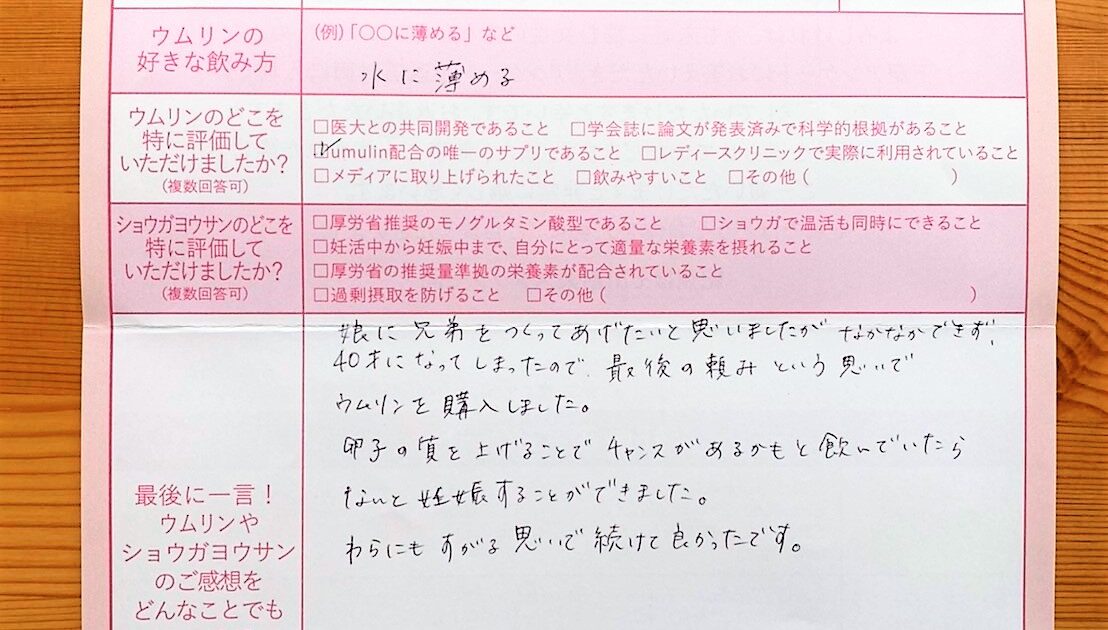 ウムリンの
好きな飲み方
(例)「○○に薄める」など
水に薄める
ウムリンのどこを
特に評価して
いただけましたか?
(複数回答可)
□医大との共同開発であること □学会誌に論文が発表済みで科学的根拠があること
☑umulin配合の唯一のサプリであること □レディースクリニックで実際に利用されていること
□メディアに取り上げられたこと □飲みやすいこと □その他( )
ショウガヨウサンのどこを
特に評価して
いただけましたか?
(複数回答可)
□厚労省推奨のモノグルタミン酸型であること □ショウガで温活も同時にできること
□妊活中から妊娠中まで、自分にとって適量な栄養素を摂れること
□厚労省の推奨量準拠の栄養素が配合されていること
□過剰摂取を防げること □その他( )
最後に一言!
ウムリンや
ショウガヨウサン
のご感想を
どんなことでも
娘に兄弟をつくってあげたいと思いましたが なかなかできず、
40才になってしまったので、最後の頼みという思いで
ウムリンを購入しました。
卵子の質を上げることでチャンスがあるかもと飲んでいたら
なんと妊娠することができました。
わらにもすがる思いで続けて良かったです。